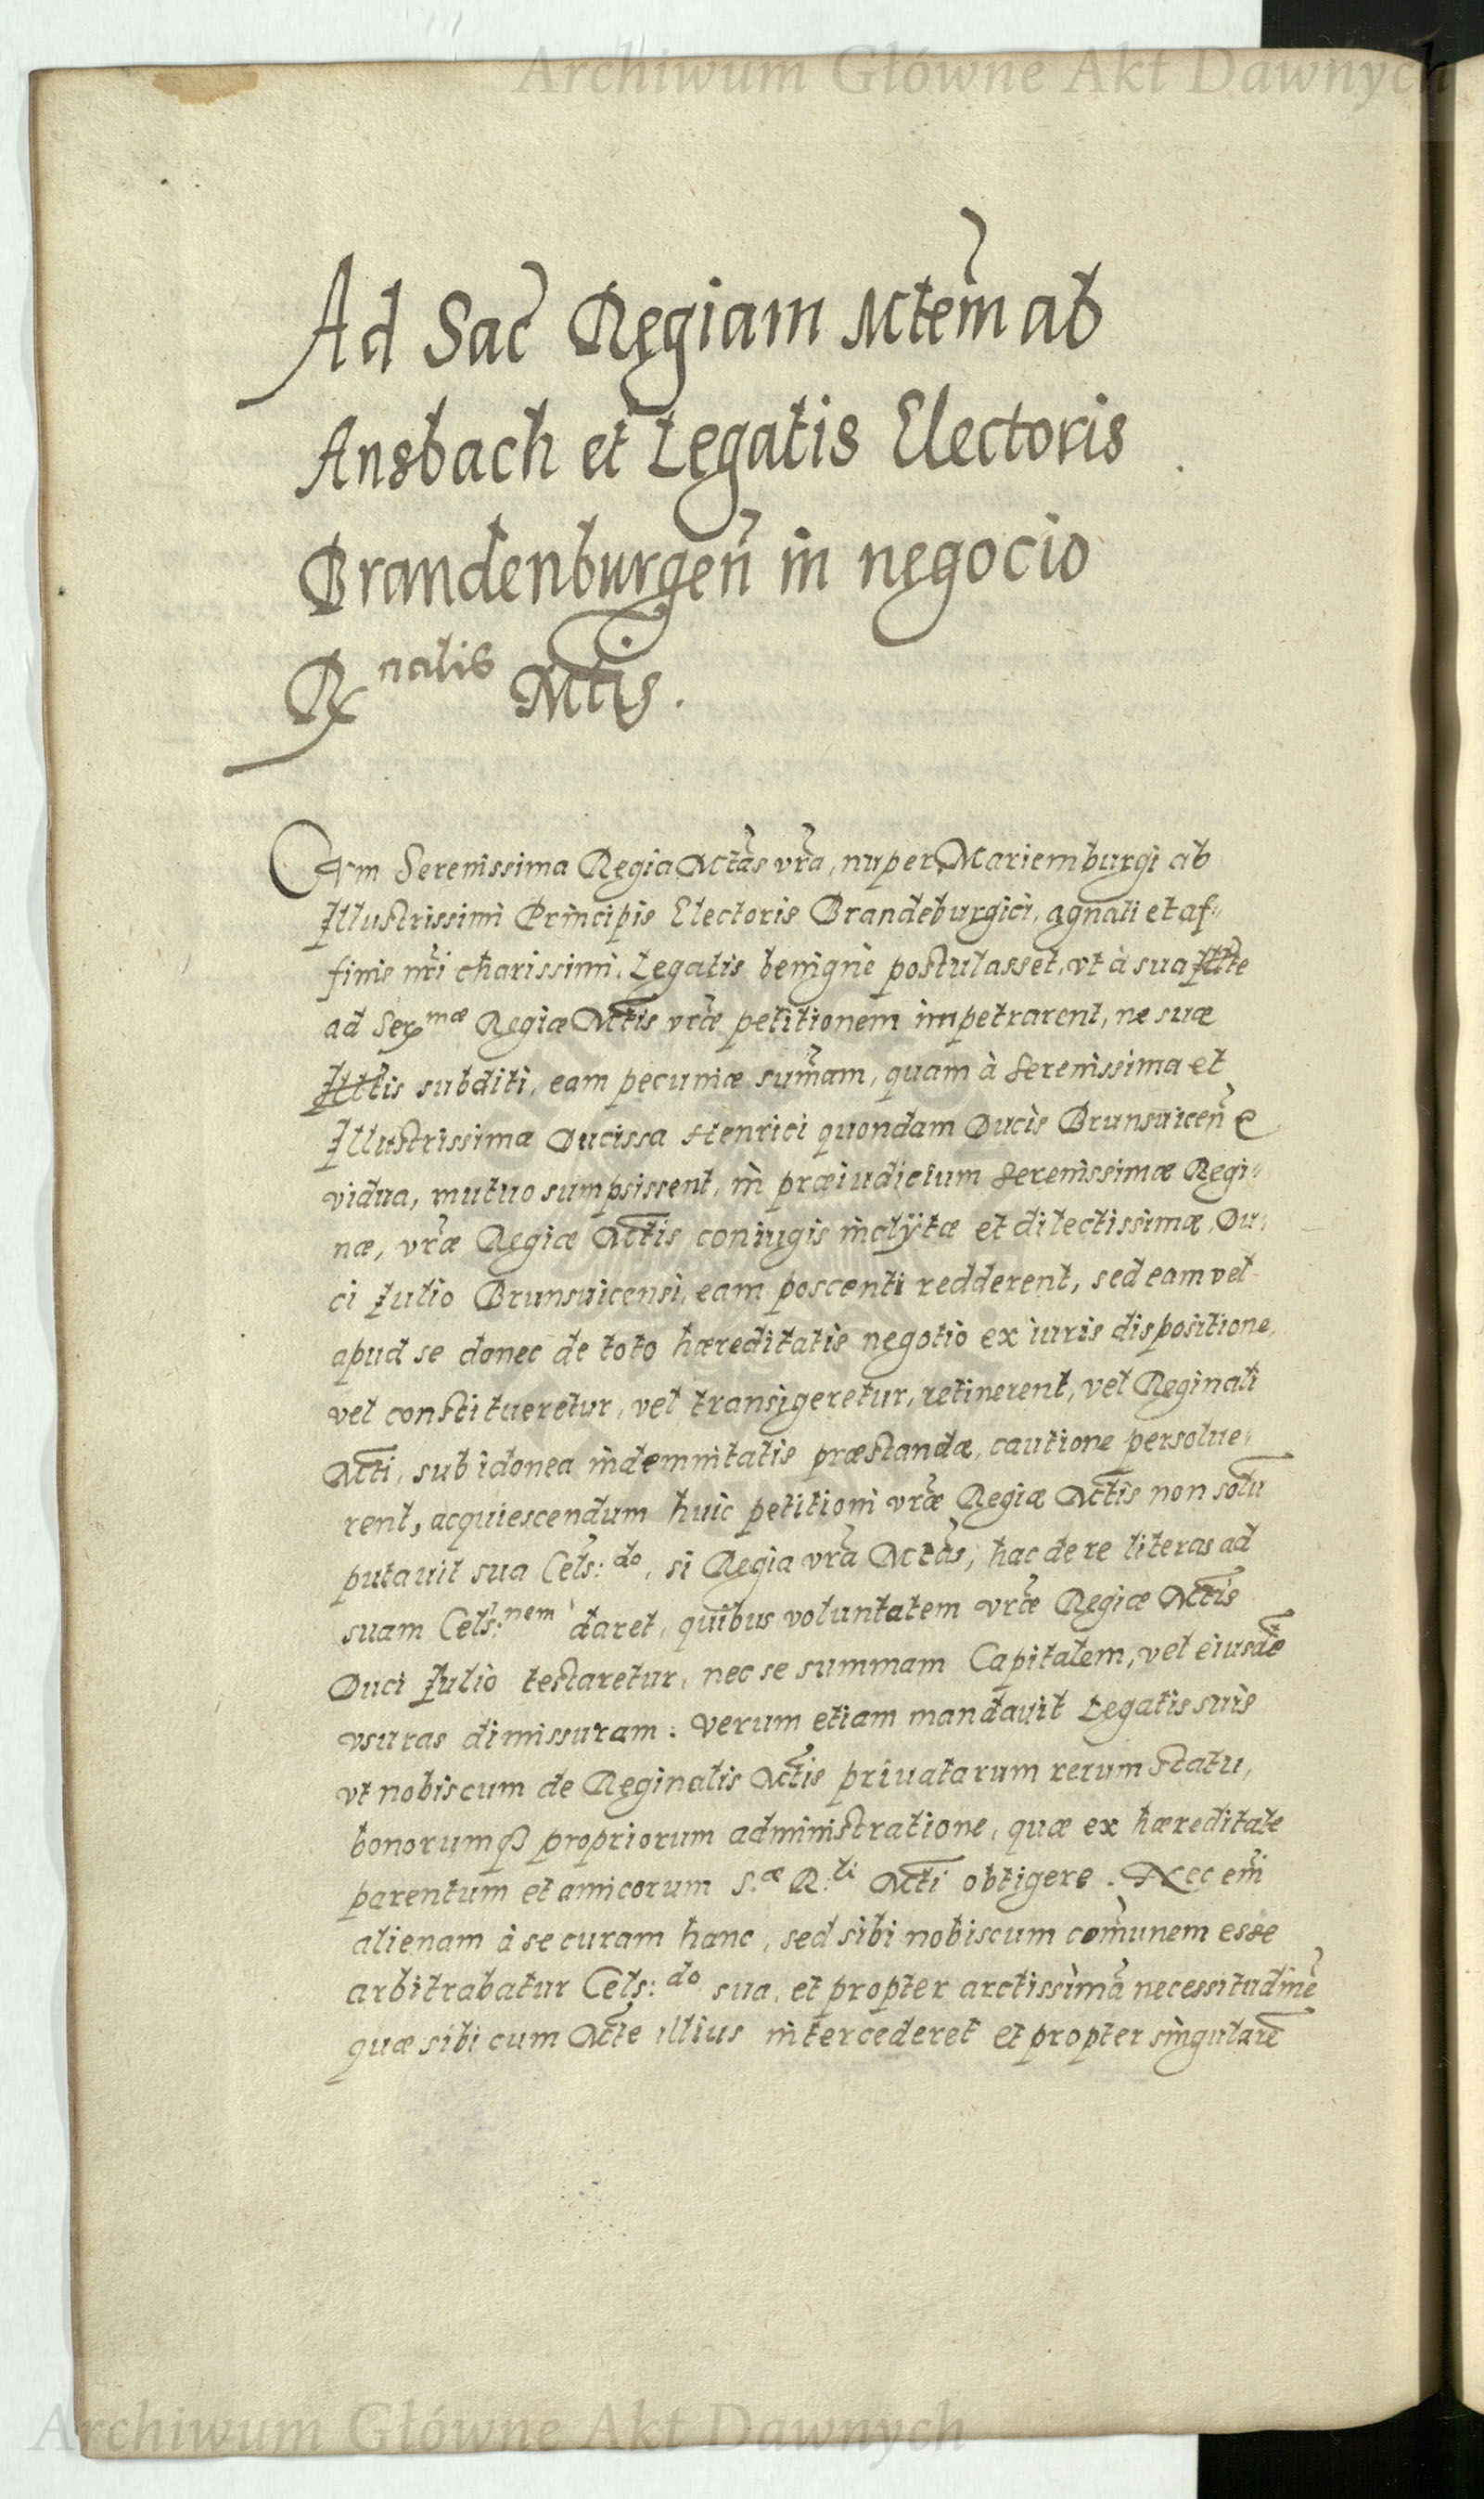 Archiwum Główne Akt Dawnych
Ad Sac̃ Regiam Mtem̃ ab
Ansbach et Legatis Electoris
Brandenburgeñ in negocio
R nalis Mtis.
Cum Serenissima Regia Mtas vr̃a, nuper Mariemburgi ab
Illustrissimi Principis Electoris Brandeburgici, agnati et af„
finis nr̃i charissimi, Legatis benignè postulasset, vt à sua Illtte
ad Ser mæ Regiæ Mtis vr̃æ petitionem impetrarent, ne suæ
Illttis subditi, eam pecuniæ sum̃am, quam à Serenissima et
Illustrissima Ducissa Henrici quondam Ducis Brunsuiceñ
vidua, mutuo sumpsissent, in præiudicium Serenissimæ Regi„
næ, vr̃æ Regiæ Mtis coniugis inclÿtæ et dilectissimæ, Du„
ci Iulio Brunsuicensi, eam poscenti redderent, sed eam vel
apud se donec de toto hæreditatis negotio ex iuris dispositione,
vel constitueretur, vel transigeretur, retinerent, vel Reginali
Mti, sub idonea indemnitatis præstandæ, cautione persolue„
rent, acquiescendum huic petitioni vr̃æ Regiæ Mtis non solũ
putauit sua Cels: do, si Regia vr̃a Mtas, hac de re literas ad
suam Cels: nem daret, quibus voluntatem vr̃æ Regiæ Mtis
Duci Iulio testaretur, nec se summam Capitalem, vel eiusdẽ
vsuras dimissuram: verum etiam mandauit Legatis suis
vt nobiscum de Reginalis Mtis priuatarum rerum statu,
bonorumq3 propriorum administratione, quæ ex hæreditate
parentum et amicorum S. æ R. li Mti obtigere. Nec em̃
alienam à se curam hanc, sed sibi nobiscum com̃unem esse
arbitrabatur Cels: do sua, et propter arctissimã necessitudinẽ
quæ sibi cum Mte illius intercederet et propter singularẽ
Archiwum Główne Akt Dawnych